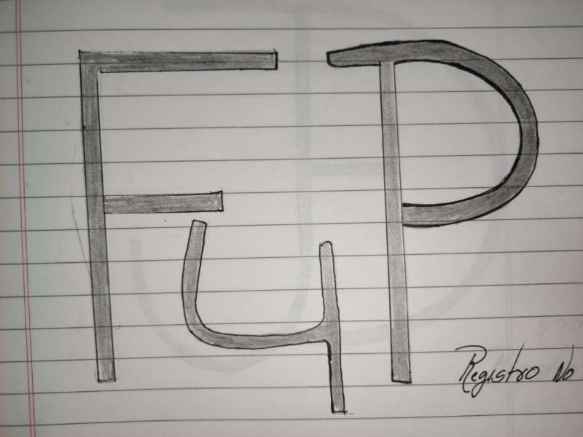 F4P
Registro No